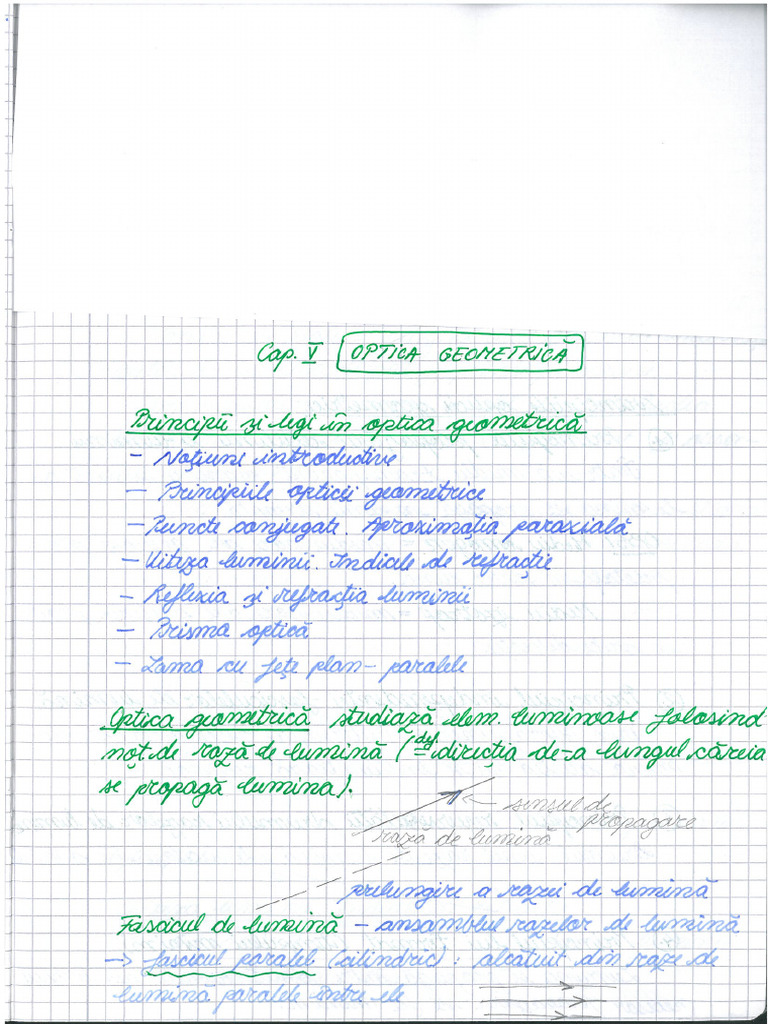 Cap. V OPTICA GEOMETRICĂ
Principii și legi în optica geometrică
- Noțiuni introductive
- Principiile opticii geometrice
- Puncte conjugate. Aproximația paraxială
- Viteza luminii. Indicele de refracție
- Reflexia și refracția luminii
- Prisma optică
- Lama cu fețe plan-paralele
Optica geometrică studiază elem. luminoase folosind
noț. de rază de lumină (def= direcția de-a lungul căreia
se propagă lumina).
← sensul de
propagare
rază de lumină
prelungire a razei de lumină
Fascicul de lumină - ansamblul razelor de lumină
→ fascicul paralel (cilindric): alcătuit din raze de
lumină paralele între ele